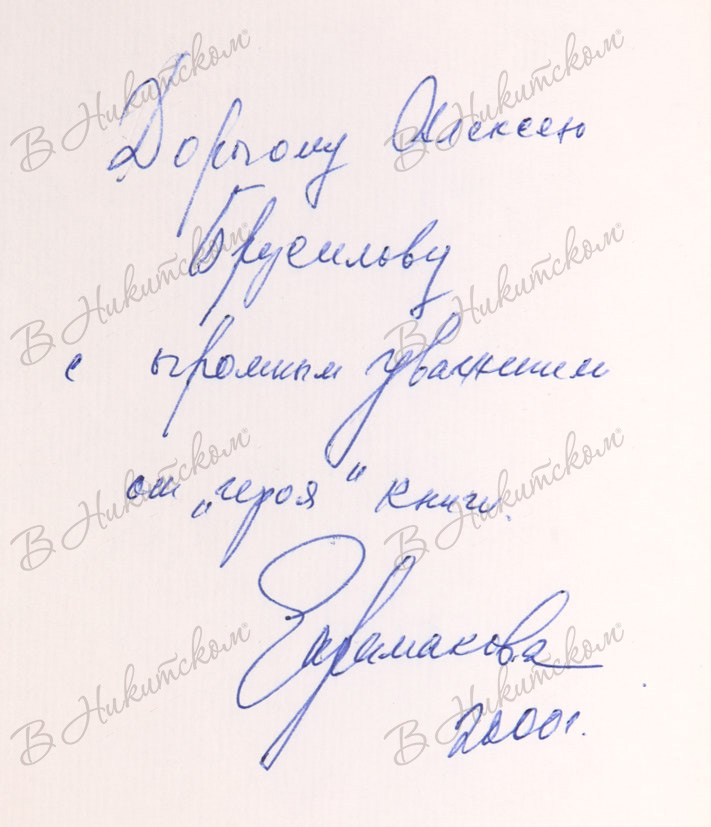 В Никитском® В Никитском®
Дорогому Алексею
Брусилову
В Никитском® В Никитском®
с огромным уважением
от „героя" книги.
В Никитском® В Никитском®
2000г.
В Никитском® В Никитском®